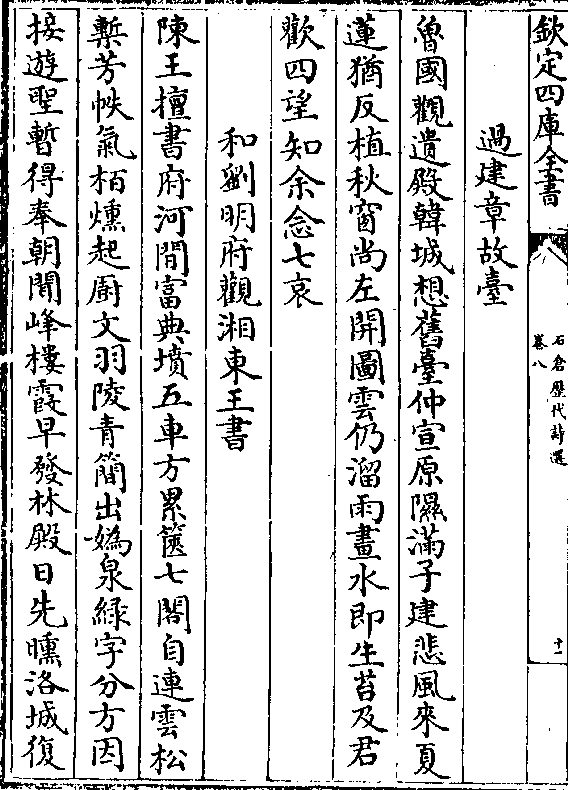 欽定四庫全書
石倉歷代詩選
卷八
十一
過建章故臺
魯國觀遺殿韓城想舊臺仲宣原隰滿子建悲風來夏
蓮猶反植秋窗尚左開圖雲仍溜雨畫水即生苔及君
歡四望知余念七哀
和劉明府觀湘東王書
陳王擅書府河間富典墳五車方累篋七閣自連雲松
槧芳帙氣栢爐起廚文羽陵青簡出媯泉緑字分方因
接遊聖暫得奉朝聞峰樓霞早發林殿日先曛洛城復